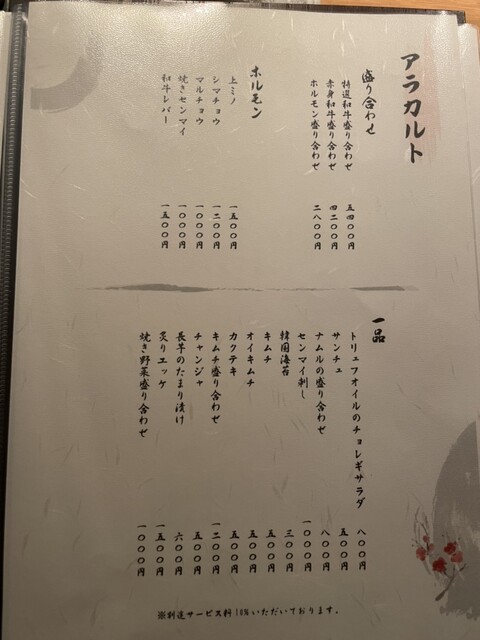 アラカルト
盛り合わせ
特選和牛盛り合わせ 五四〇〇円
赤身和牛盛り合わせ 四二〇〇円
ホルモン盛り合わせ 二八〇〇円
ホルモン
上ミノ 一五〇〇円
シマチョウ 一二〇〇円
マルチョウ 一〇〇〇円
焼きセンマイ 一〇〇〇円
和牛レバー 一五〇〇円
一品
トリュフオイルのチョレギサラダ 八〇〇円
サンチュ 五〇〇円
ナムルの盛り合わせ 八〇〇円
センマイ刺し 一〇〇〇円
韓国海苔 三〇〇円
キムチ 五〇〇円
オイキムチ 五〇〇円
カクテキ 五〇〇円
キムチ盛り合わせ 一二〇〇円
チャンジャ 五〇〇円
長芋のたまり漬け 六〇〇円
炙りエッケ 一五〇〇円
焼き野菜盛り合わせ 一〇〇〇円
※別途サービス料10%いただいております。